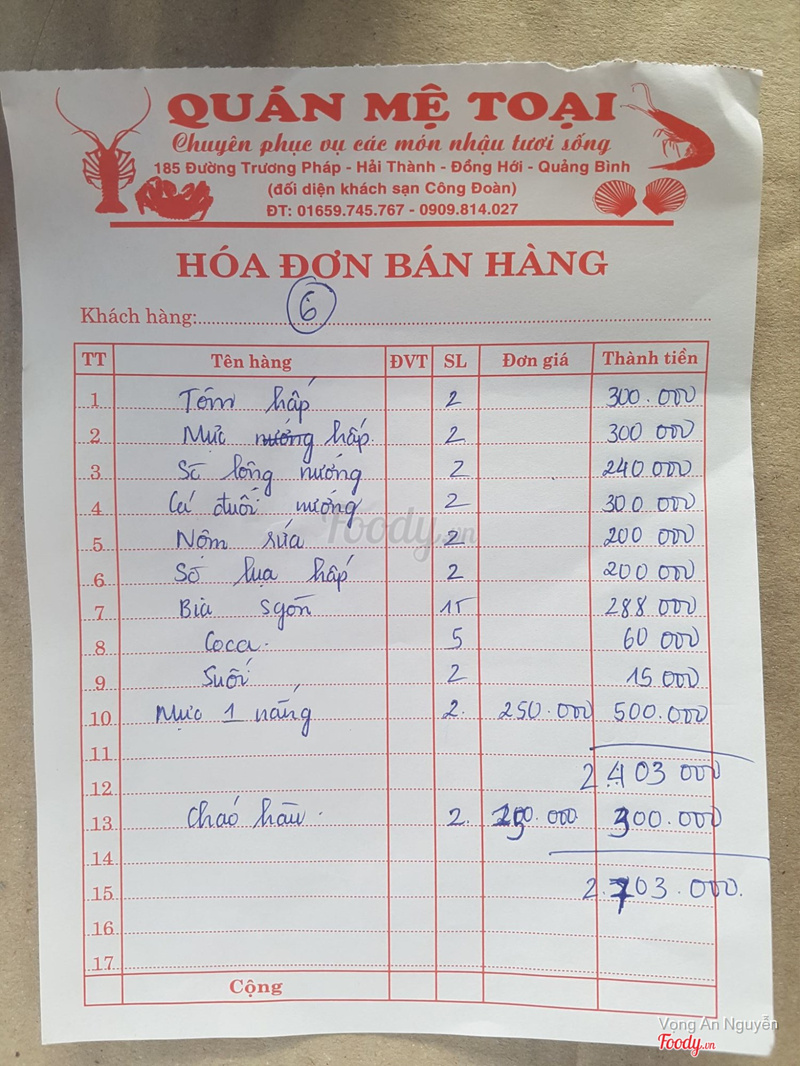 QUÁN MỆ TOẠI
Chuyên phục vụ các món nhậu tươi sống
185 Đường Trương Pháp - Hải Thành - Đồng Hới - Quảng Bình
(đối diện khách sạn Công Đoàn)
ĐT: 01659.745.767 - 0909.814.027
HÓA ĐƠN BÁN HÀNG
Khách hàng: 6
TT Tên hàng ĐVT SL Đơn giá Thành tiền
1 Tôm hấp 2 300.000
2 Mực nướng hấp. 2 300 000
3 Sò lông nướng 2 240 000
4 Cá đuối nướng 2 300 000
5 Nộm sứa 2 200 000
6 Sò lụa hấp 2 200 000
7 Bia Sgòn 15 288 000
8 Coca. 5 60 000
9 Suối 2 15 000
10 Mực 1 nắng 2. 250.000 500.000
11
12 2 403 000
13 Cháo hàu. 2. 150.000 300.000
14
15 2.703.000.
16
17
Cộng
Foody.vn
Vọng An Nguyễn
Foody.vn